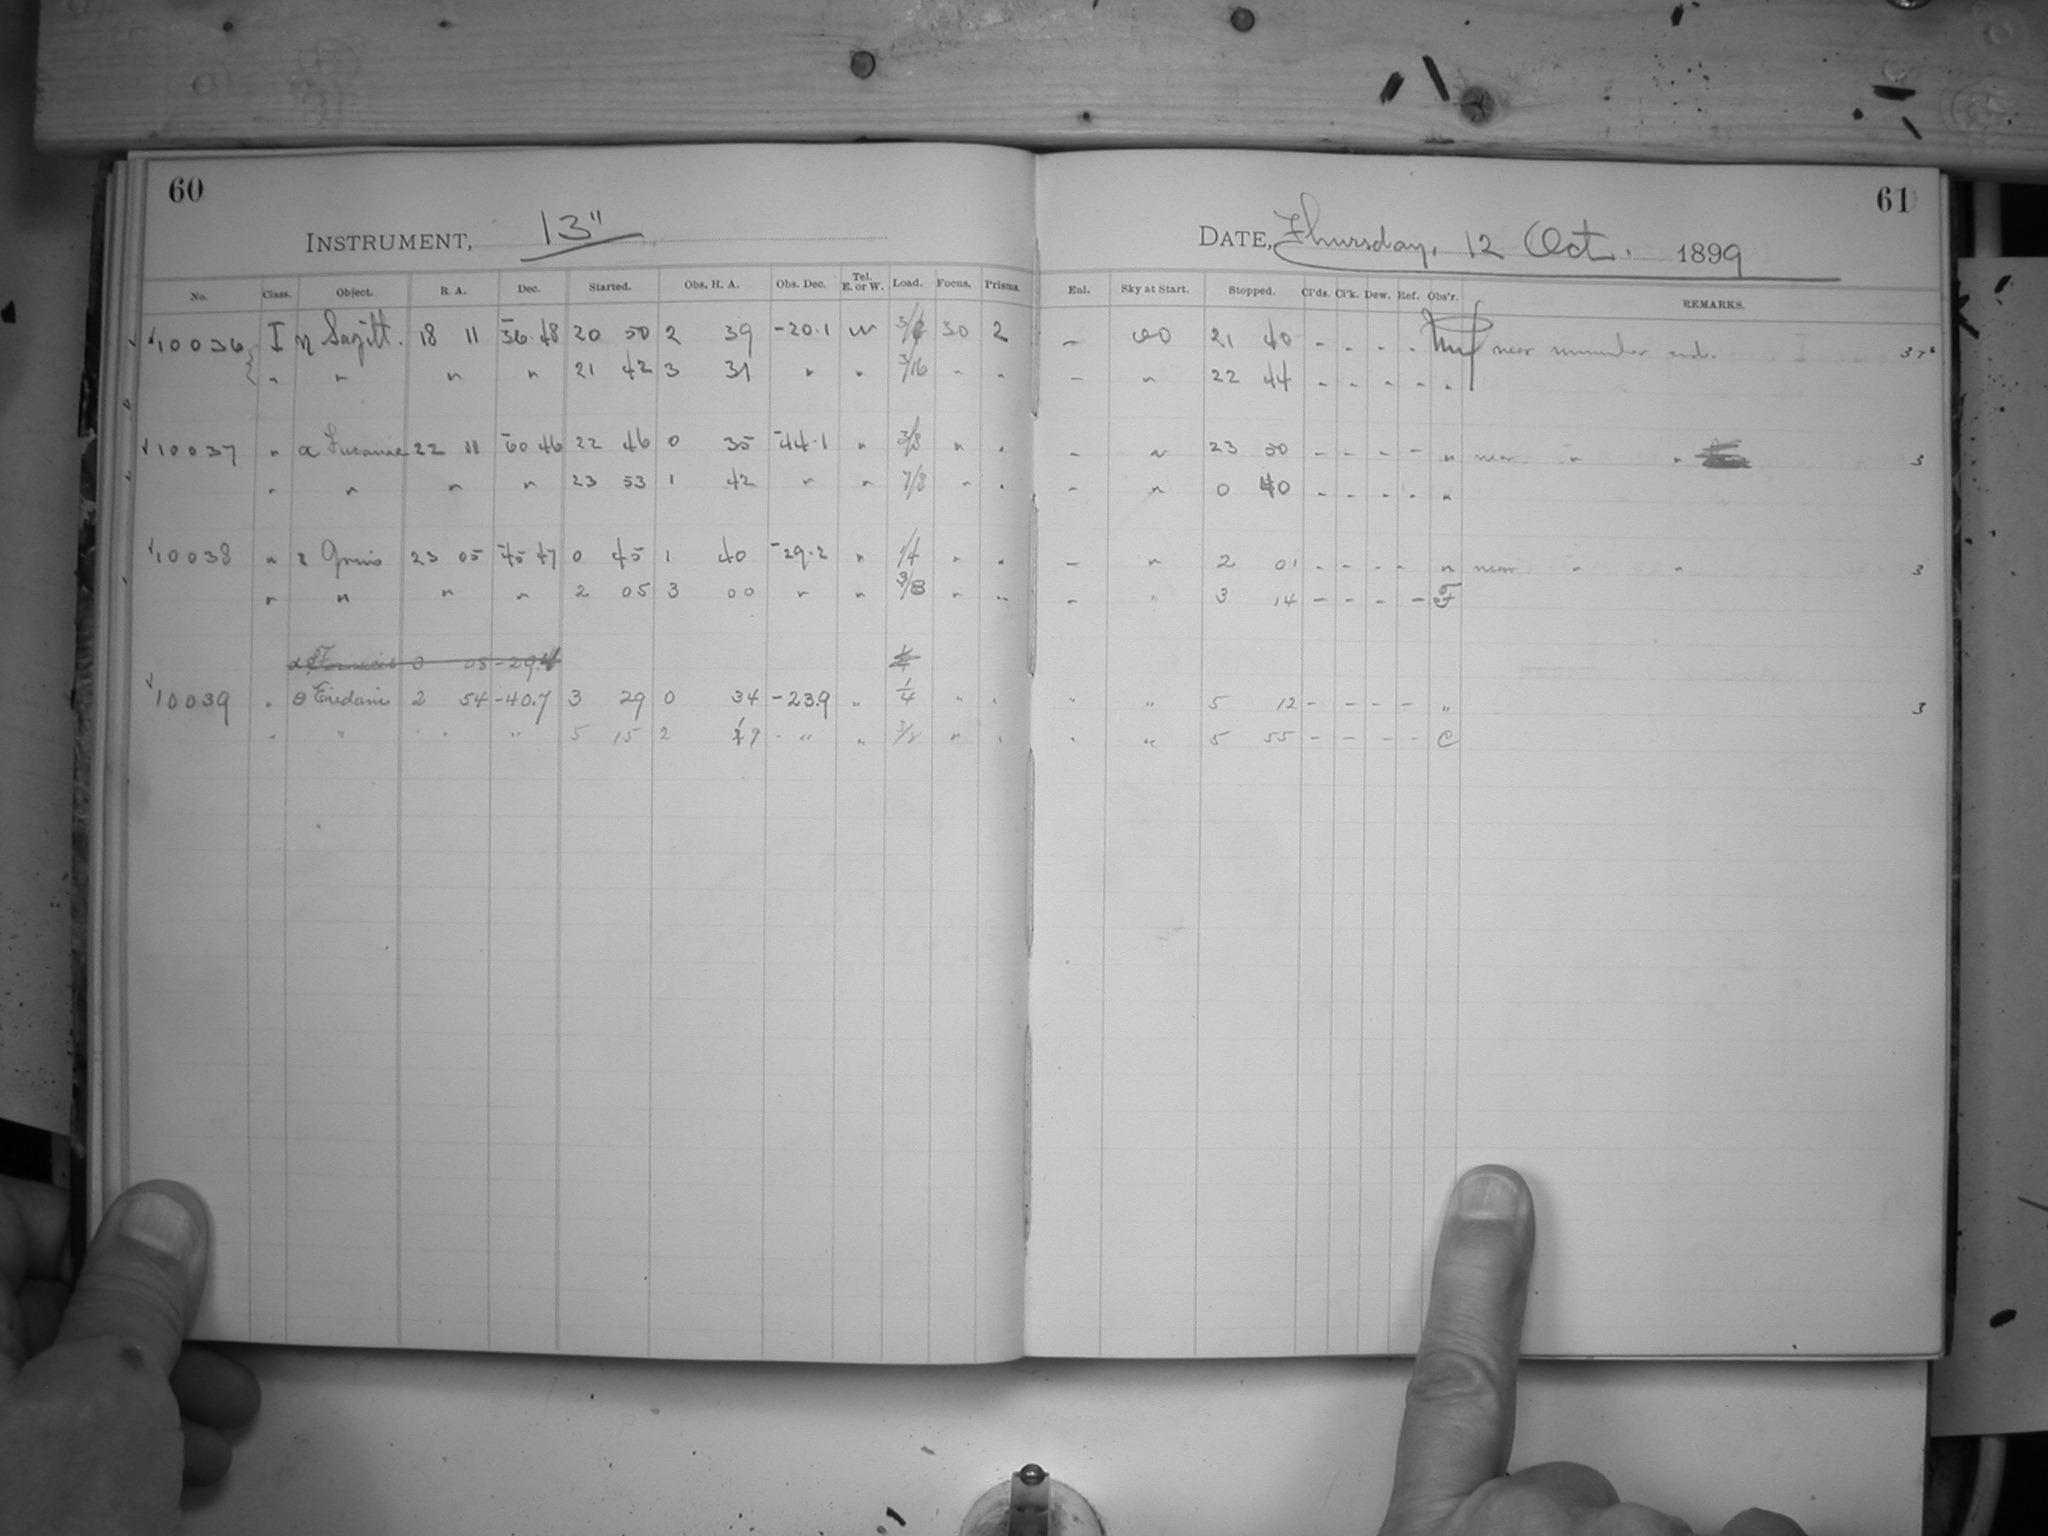 60
INSTRUMENT, 13"
No. Class. Object. R. A. Dec. Started. Obs. H. A. Obs. Dec. Tel. E. or W. Load. Focus. Prisms.
10036 I η Sagitt. 18 11 -36.48 20 50 2 39 -20.1 w 30 2
" " " " 21 42 3 31 " " 3/16 " "
10037 " α 22 11 -60 46 22 46 0 35 -44.1 " 3/8 " "
" " " " 23 53 1 42 " " 7/8 " "
10038 " Gruis 23 05 -45 47 0 45 1 40 -29.2 " 1/4 " "
" " " " 2 05 3 00 " " 3/8 " "
α Fornacis 3 08 -29.4
10039 " θ Eridani 2 54 -40.7 3 29 0 34 -23.9 " 1/4 " "
" " " " 5 15 2 19 " " " "
61
DATE, Thursday, 12 Oct. 1899
Enl. Sky at Start. Stopped. Cl'ds. Cl'k. Dew. Ref. Obs'r. REMARKS.
- 21 40 - - - - near end.
- " 22 44 - - - - "
- " 23 50 - - - - " near " " 3
- " 0 40 - - - - "
- " 2 01 - - - - " near " " 3
- " 3 14 - - - - F
" " 5 12 - - - - " 3
" " 5 55 - - - - C